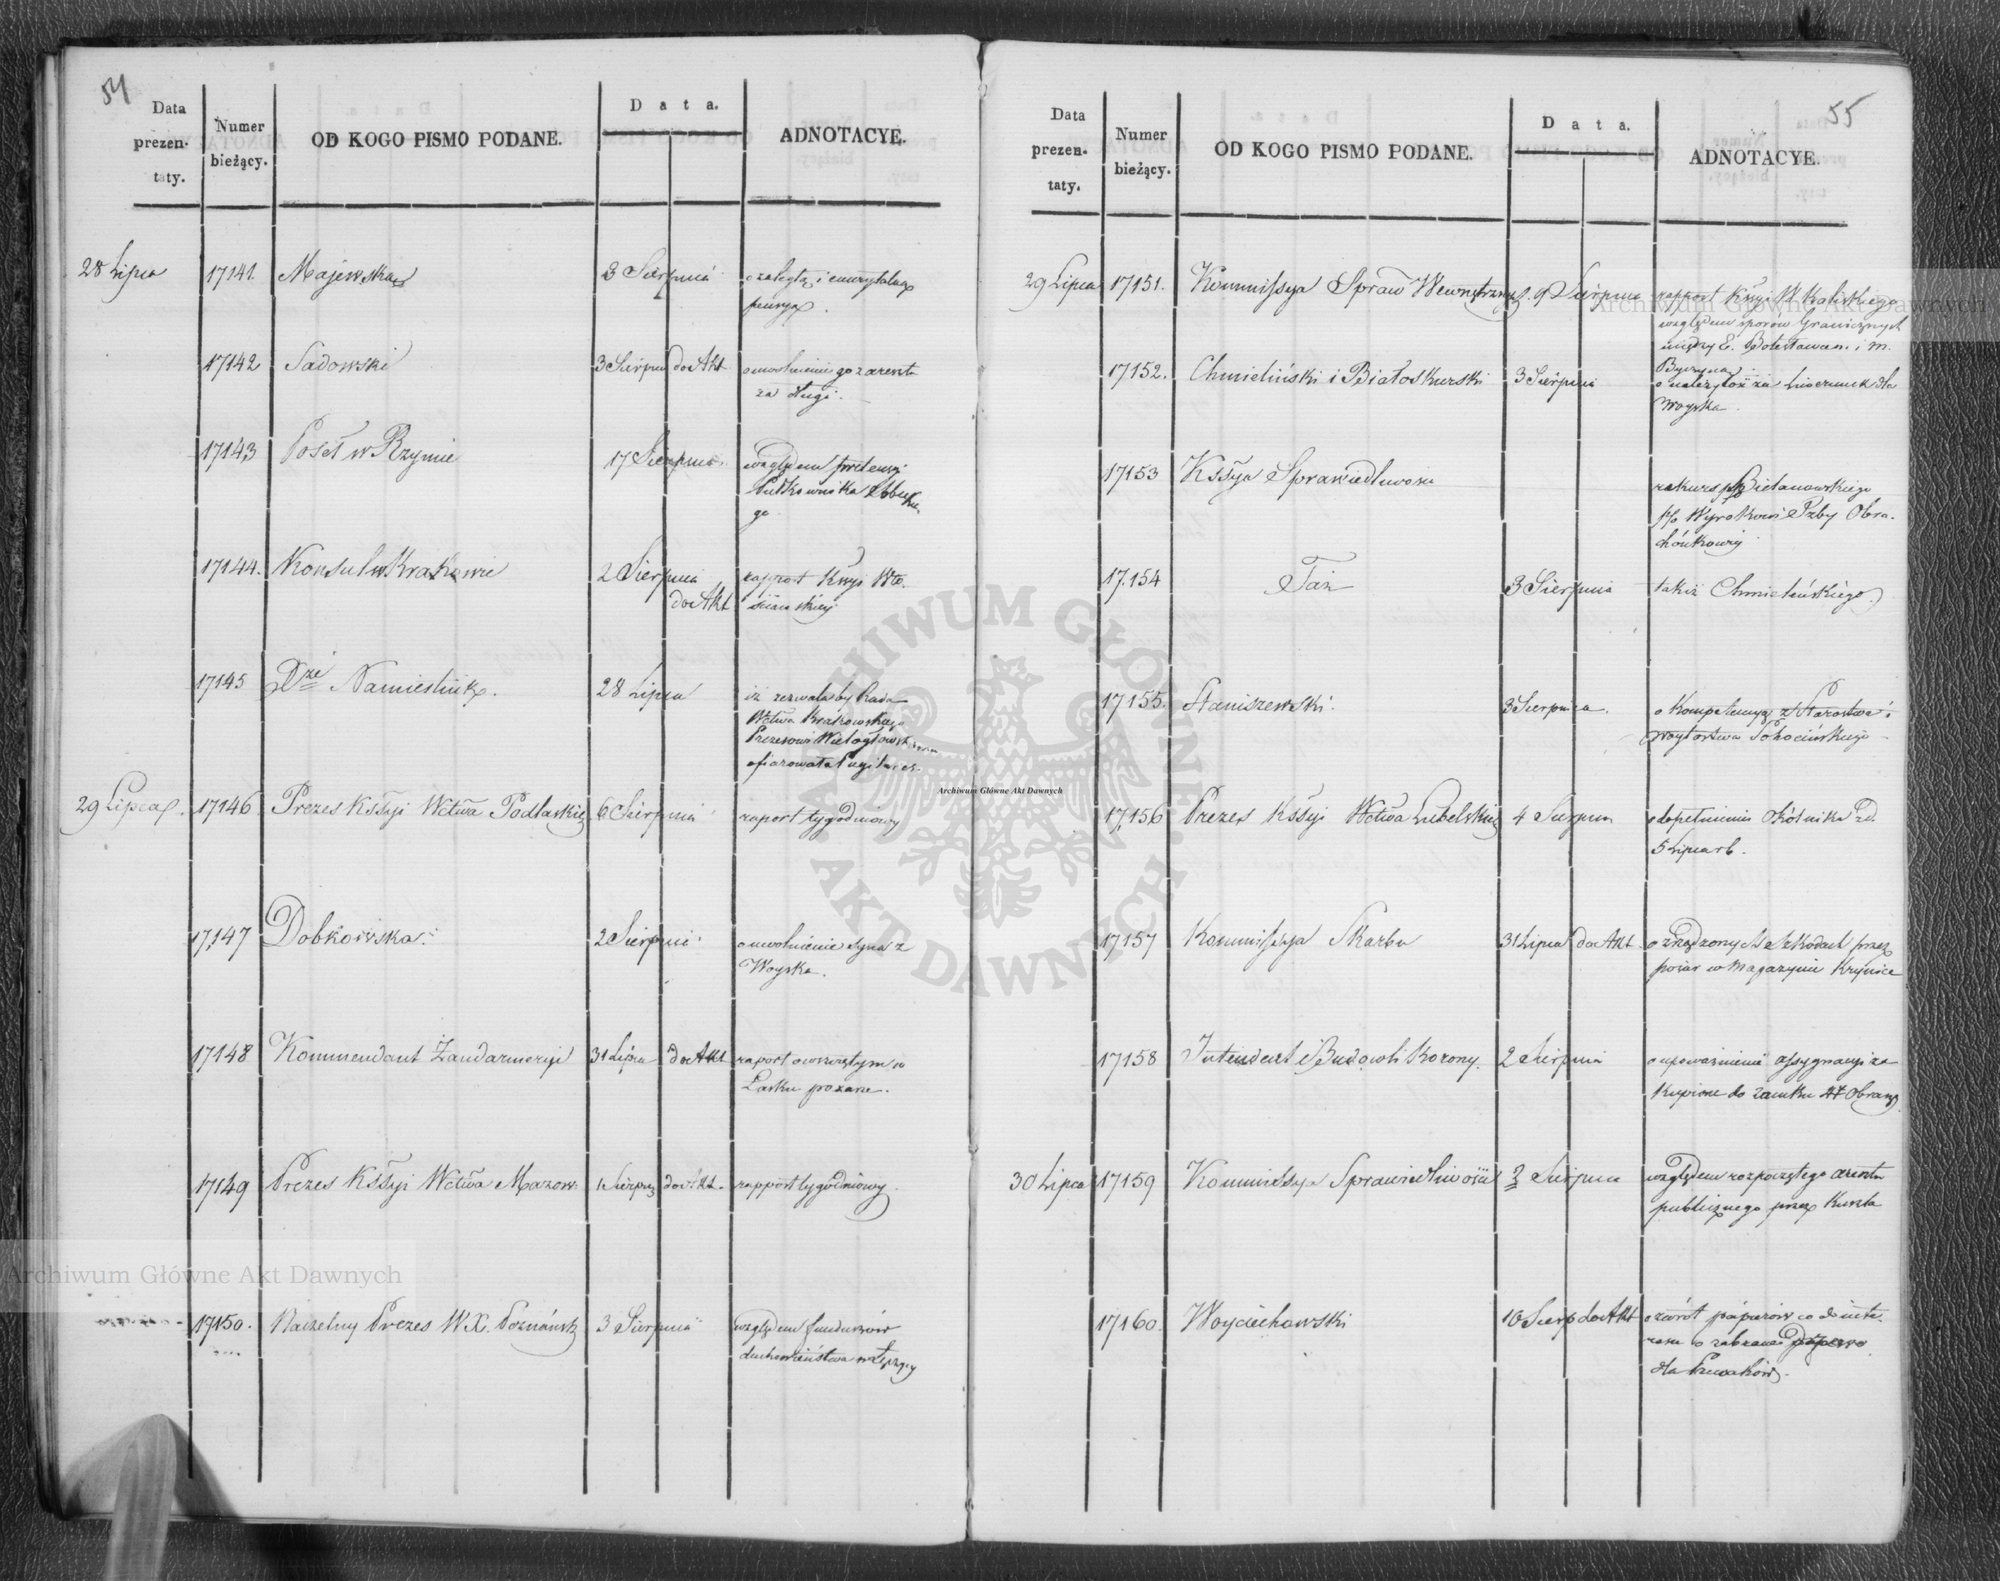 54
Data prezen- taty.
Numer bieżący.
OD KOGO PISMO PODANE.
Data.
ADNOTACYE.
28 Lipca 17141. Majewska 3 Sierpnia o zaległą i emerytalną
pensyą.
17142 Sadowski 3 Sierpn do Akt o uwolnienie go z aresztu
za długi.
17143 Poseł w Rzymie 17 Sierpnia. względem pretensyi
Pułkownika
go
17144. Konsul w Krakowie 2 Sierpnia do Akt rapport Kssyi Wło-
ściańskiey
17145 Dzi Namiestnik. 28 Lipca iż zezwala by Rada
Wctwa Krakowskiego
Prezesowi Wielogłowskiemu
ofiarowała Pugilares.
29 Lipca. 17146 Prezes Kssyi Wctwa Podlaskie 6 Sierpnia raport tygodniowy
17147 Dobkowska. 2 Sierpni o uwolnienie syna z
Woyska.
17148 Kommendant Żandarmeryi 31 Lipca do Akt raport o wszczętym w
Łasku pożarze.
17149 Prezes Kssyi Wctwa Mazow: 1 Sierpn do Akt. rapport tygodniowy.
17150. Naczelny Prezes W.X. Poznańsk 3 Sierpnia względem funduszów
duchowieństwa
55
Data prezen- taty.
Numer bieżący.
OD KOGO PISMO PODANE.
Data.
ADNOTACYE.
29 Lipca 17151. Kommissya Spraw Wewnętrznych. 9 Sierpnia rapport Kssyi W Kaliskiego
względem sporów Granicznych
między E. Bolesławcem i m.
Byczyną
17152. Chmieliński i Białoskurski 3 Sierpnia o należytość za Liwerunek dla
Woyska.
17153 Kssya Sprawiedliwości rekurs Bielanowskiego
p/o Wyrokowi Izby Obra-
chunkowey
17.154 Taż 3 Sierpnia takiż Chmielińskiego.
17155. Staniszewski. 3 Sierpnia. o kompetencyą z Starostwa i
Woytostwa
17,156 Prezes Kssyi Wctwa Lubelskie 4 Sierpnia o dopełnieniu Okólnika zd.
5 Lipca rb.
17157 Kommissya Skarbu 31 Lipca do Akt. o zrządzonych szkodach przez
pożar w Magazynie Krynice
17158 Intendent Budowli Korony. 2 Sierpnia o upoważnienie assygnacyi za
kupione do Zamku 27 Obrazy.
30 Lipca 17159 Kommissya Sprawiedliwości 3 Sierpnia względem rozpoczętego aresztu
publicznego przez
17160. Woyciechowski 10 Sierp do Akt o zwrót papierów co do inte-
resu o zabrane
dla Prusaków.
Archiwum Główne Akt Dawnych
Archiwum Główne Akt Dawnych
Archiwum Główne Akt Dawnych
ARCHIWUM GŁÓWNE AKT DAWNYCH